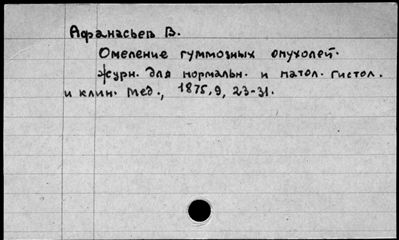 Афанасьев В.
Омеление гуммозных опухолей.
Журн. для нормальн. и патол. гистол.
и клин. мед., 1875, 9, 23-31.